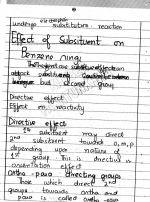 electrophilic
undergo substitution reaction
Effect of Substituent on
Benzene ring:
There are
attack position
but second group
Directive effect
Effect on reactivity
Directive effect
1st substituent may direct
2nd substituent towards o,m,p
depending upon nature of
1st group. This is directive
orientation effect
Ortho - para directing groups
Those which direct 2nd
groups towards ortho and
para is called ortho-para